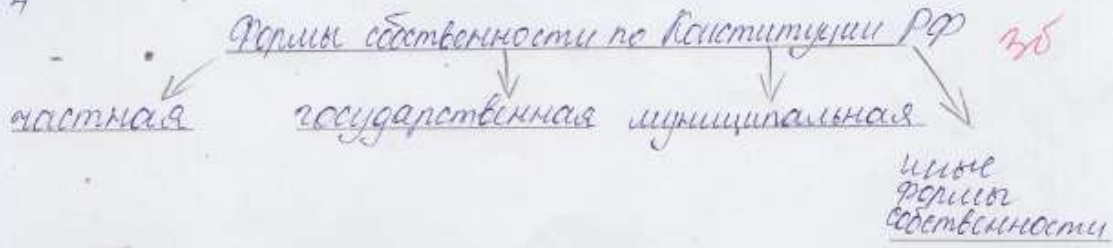 Формы собственности по Конституции РФ 3б
частная государственная муниципальная
иные
формы
собственности